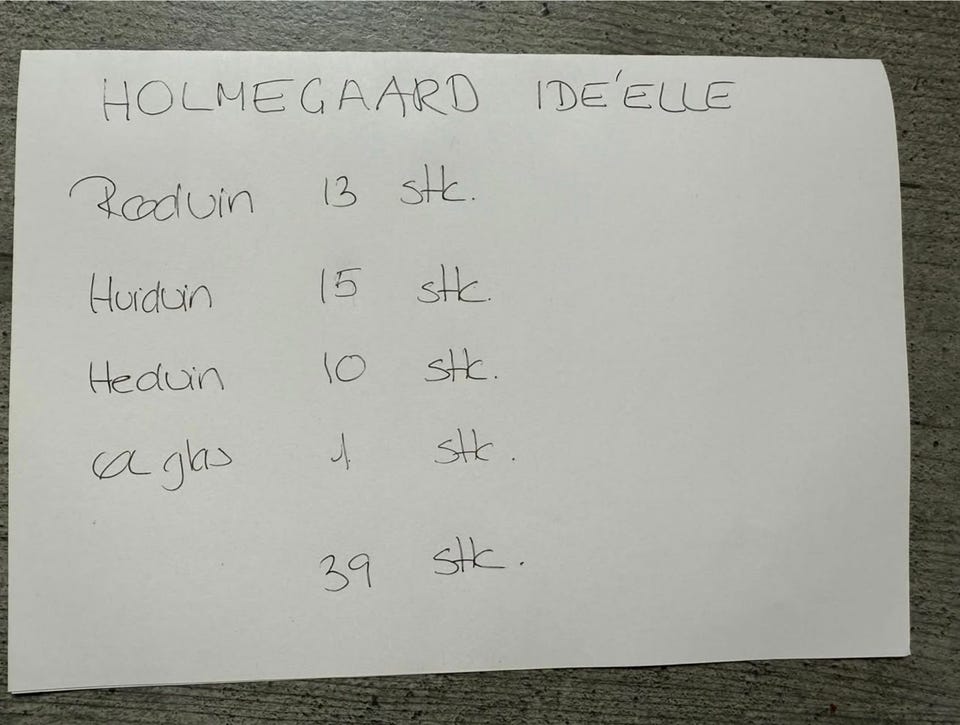 HOLMEGAARD IDÉELLE
Rødvin 13 stk.
Hvidvin 15 stk.
Hedvin 10 stk.
øl glas 1 stk.
39 stk.